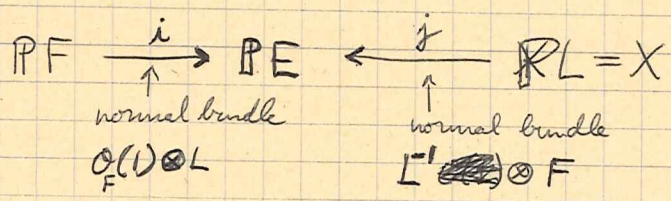 ℙF —i→ ℙE ←j— ℙL = X
↑ ↑
normal bundle normal bundle
O_F(1) ⊗ L L⁻¹ ⊗ F